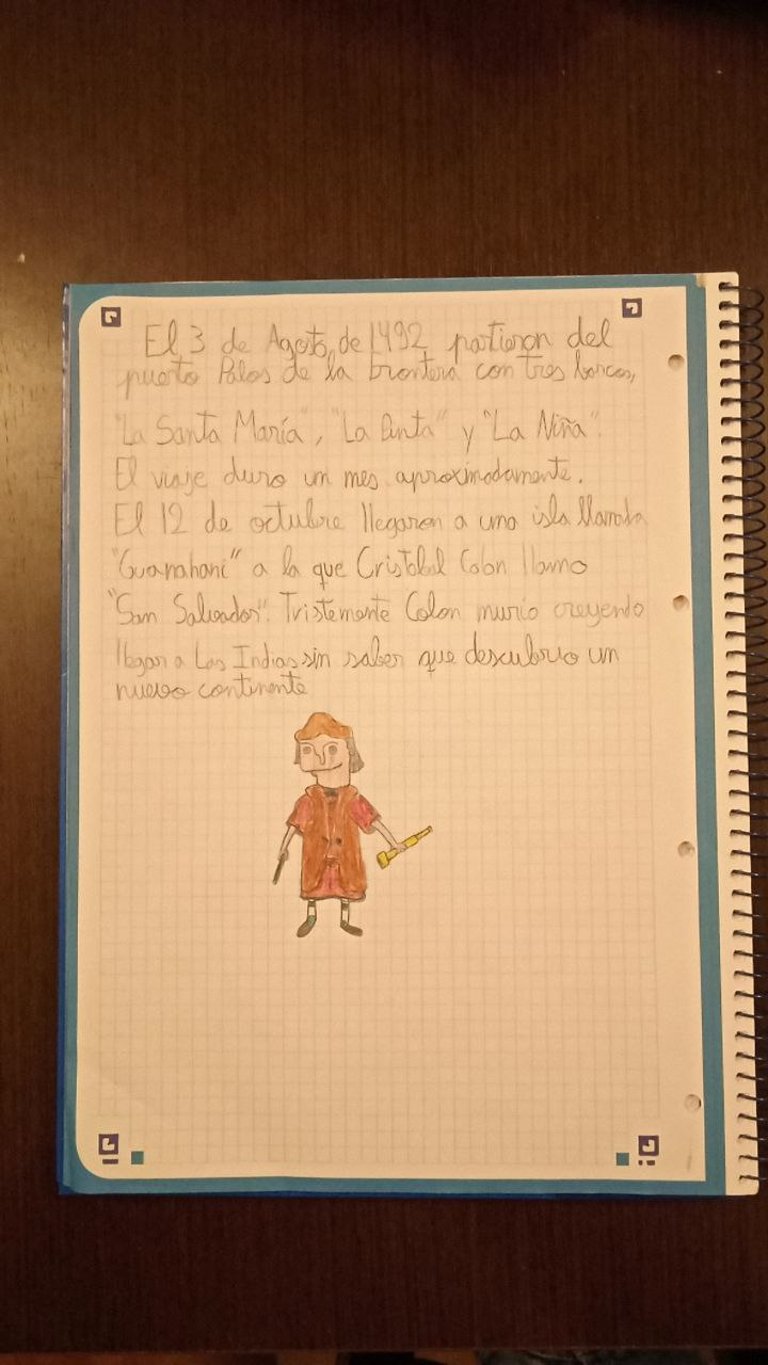 El 3 de Agosto, de 1492 partieron del
puerto Palos de la frontera con tres barcos,
"La Santa María", "La Pinta" y "La Niña".
El viaje duro un mes aproximadamente.
El 12 de octubre llegaron a una isla llamada
"Guanahani" a la que Cristobal Colon llamo
"San Salvador". Tristemente Colon murio creyendo
llegar a Las Indias sin saber que descubrio un
nuevo continente